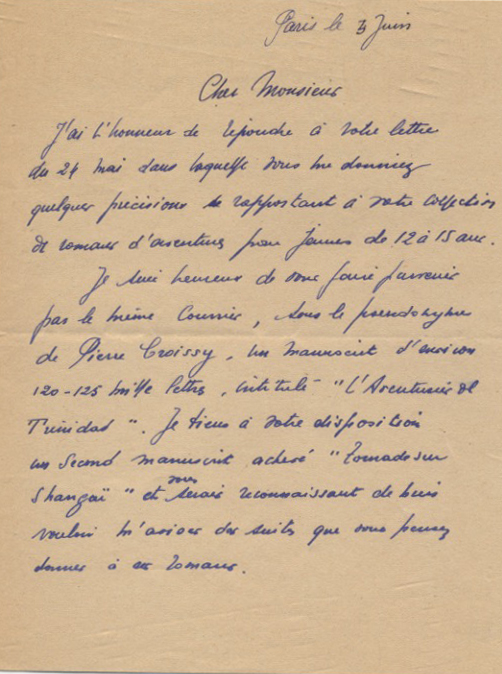 Paris le 3 Juin
Cher Monsieur
J'ai l'honneur de répondre à votre lettre
du 24 mai dans laquelle vous me donniez
quelques précisions se rapportant à votre collection
de romans d'aventures pour jeunes de 12 à 15 ans.
Je suis heureux de vous faire parvenir
par le même courrier, sous le pseudonyme
de Pierre Croissy, un manuscrit d'environ
120-125 mille lettres, intitulé "L'Aventurier de
Trinidad". Je tiens à votre disposition
un second manuscrit achevé "Tornade sur
Shangaï" et vous serais reconnaissant de bien
vouloir m'aviser des suites que vous pensez
donner à ces romans.